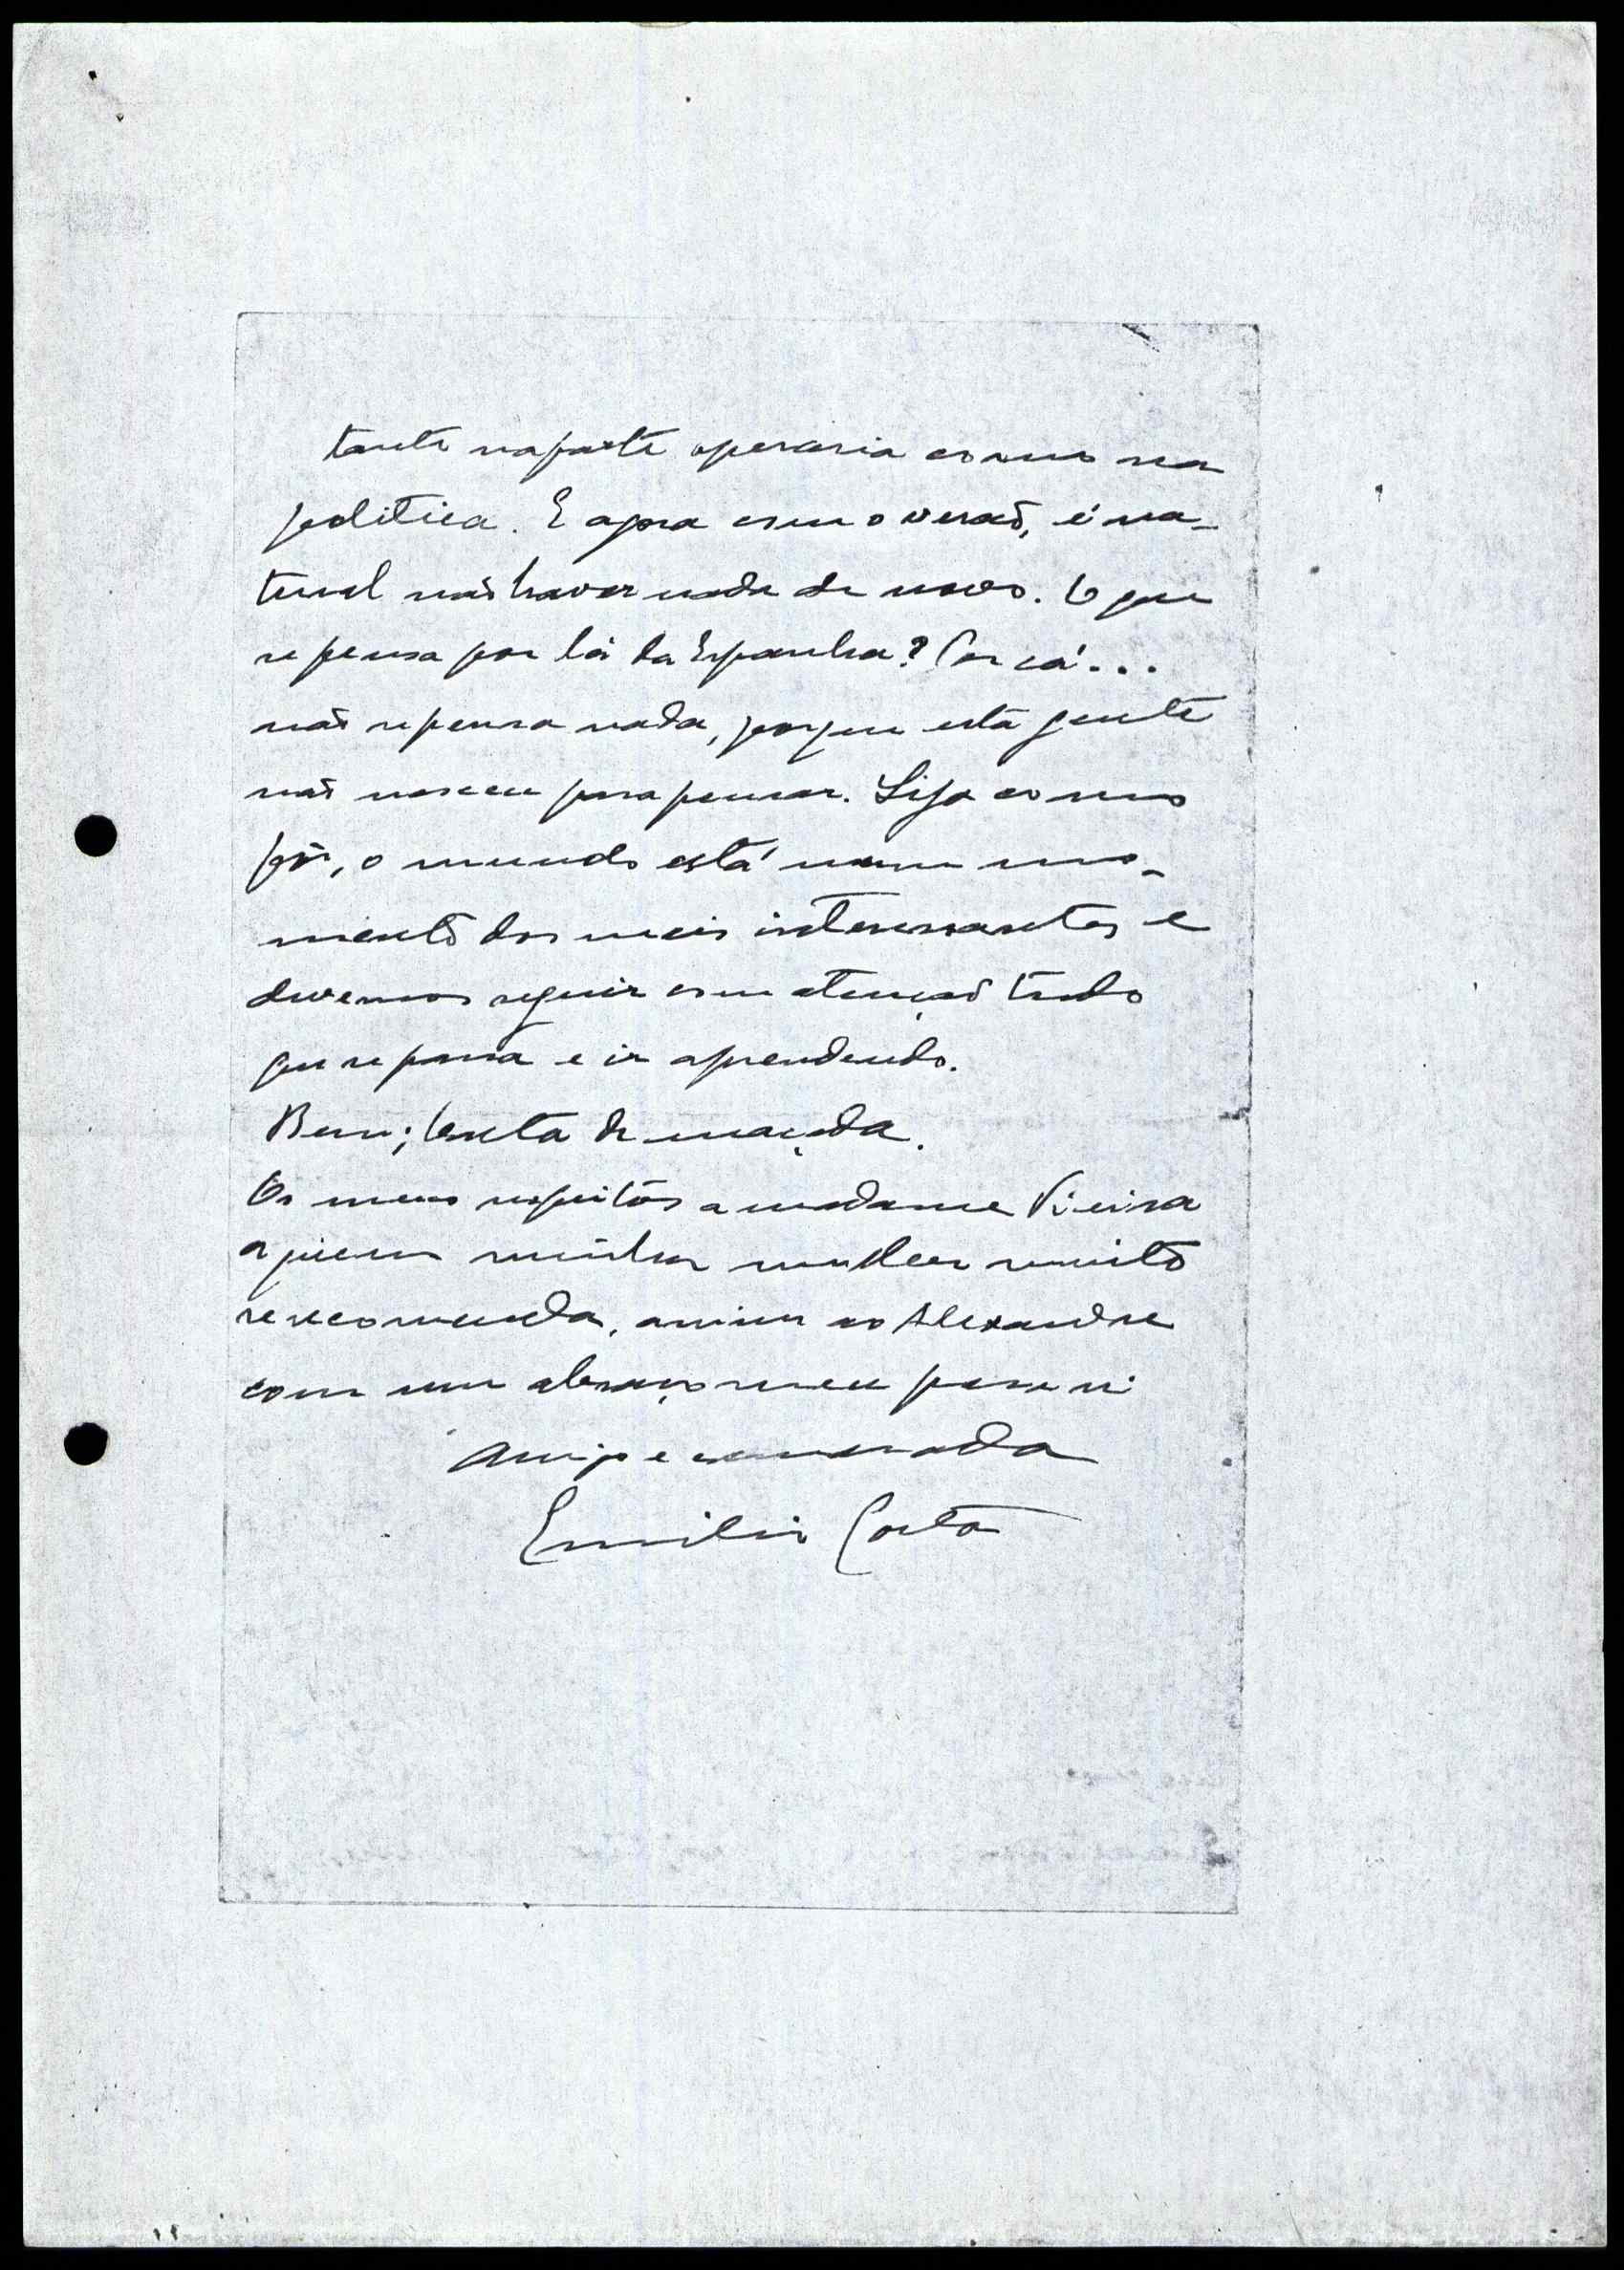 tanto na parte operaria como na
politica. E agora com o verão, é na-
tural não haver nada de novo. O que
se pensa por lá da Espanha? Por cá...
não se pensa nada, porque esta gente
não nasceu para pensar. Seja como
fôr, o mundo está num mo-
mento dos mais interessantes e
devemos seguir com atenção tudo
que se passa e ir aprendendo.
Bem; basta de maçada.
Os meus respeitos a madame Vieira
a quem minha mulher muito
se recomenda, assim ao Alexandre
com um abraço meu para si
Amigo e camarada
Emilio Costa